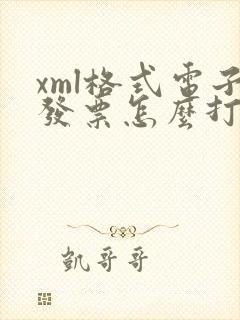 xml格式電子
發票怎麼打
凱哥哥